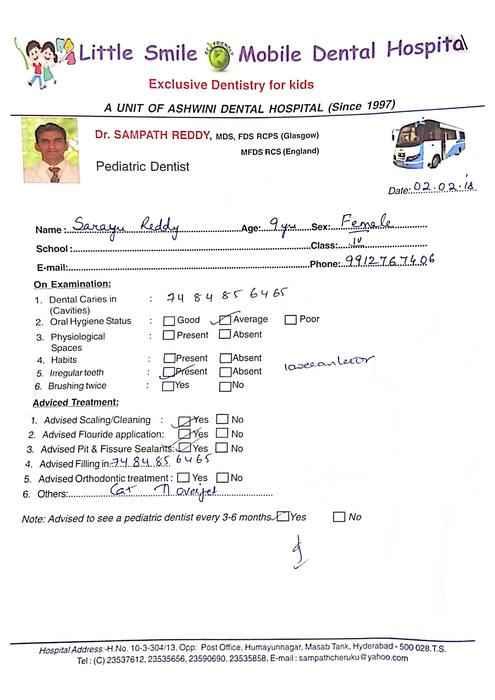 Little Smile Mobile Dental Hospital
Exclusive Dentistry for kids
A UNIT OF ASHWINI DENTAL HOSPITAL (Since 1997)
Dr. SAMPATH REDDY, MDS, FDS RCPS (Glasgow)
MFDS RCS (England)
Pediatric Dentist
Date: 02.02.18
Name: Sarayu Reddy Age: 9 yrs Sex: Female
School: Class: IV
E-mail: Phone: 9912767406
On Examination:
1. Dental Caries in (Cavities) : 74 84 85 64 65
2. Oral Hygiene Status : Good Average Poor
3. Physiological Spaces : Present Absent
4. Habits : Present Absent
5. Irregular teeth : Present Absent
6. Brushing twice : Yes No
Adviced Treatment:
1. Advised Scaling/Cleaning : Yes No
2. Advised Flouride application: Yes No
3. Advised Pit & Fissure Sealants: Yes No
4. Advised Filling in 74 84 85 64 65
5. Advised Orthodontic treatment : Yes No
6. Others: overjet
Note: Advised to see a pediatric dentist every 3-6 months Yes No
Hospital Address -H.No. 10-3-304/13, Opp: Post Office, Humayunnagar, Masab Tank, Hyderabad - 500 028.T.S.
Tel : (C) 23537612, 23535656, 23590690, 23535858, E-mail : sampathcheruku@yahoo.com